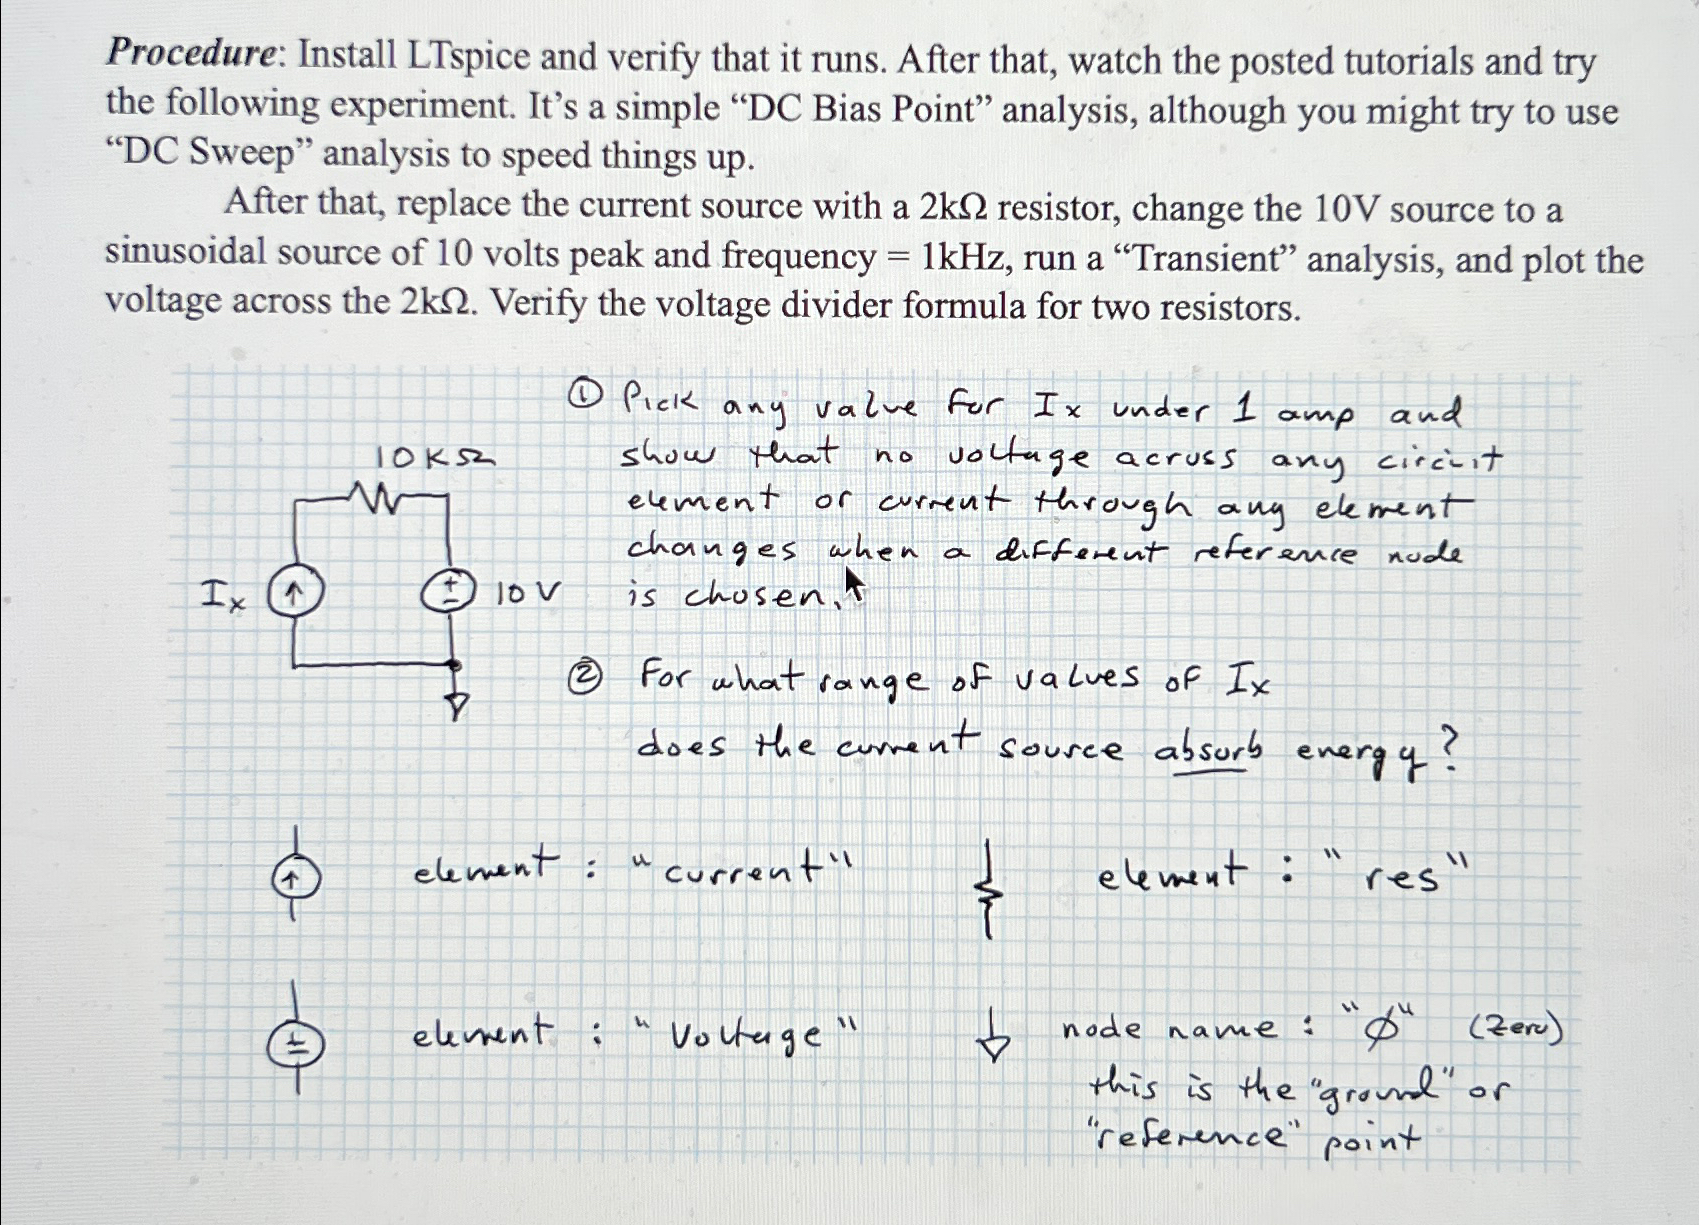 Procedure: Install LTspice and verify that it runs. After that, watch the posted tutorials and try
the following experiment. It's a simple “DC Bias Point” analysis, although you might try to use
“DC Sweep” analysis to speed things up.
After that, replace the current source with a 2kΩ resistor, change the 10V source to a
sinusoidal source of 10 volts peak and frequency = 1kHz, run a “Transient” analysis, and plot the
voltage across the 2kΩ. Verify the voltage divider formula for two resistors.
① Pick any value for Ix under 1 amp and
show that no voltage across any circuit
element or current through any element
changes when a different reference node
is chosen.
10KΩ
Ix
+
-
10V
② For what range of values of Ix
does the current source absorb energy?
element : "current"
element : "res"
element : "Voltage"
node name : "ϕ" (Zero)
this is the "ground" or
"reference" point